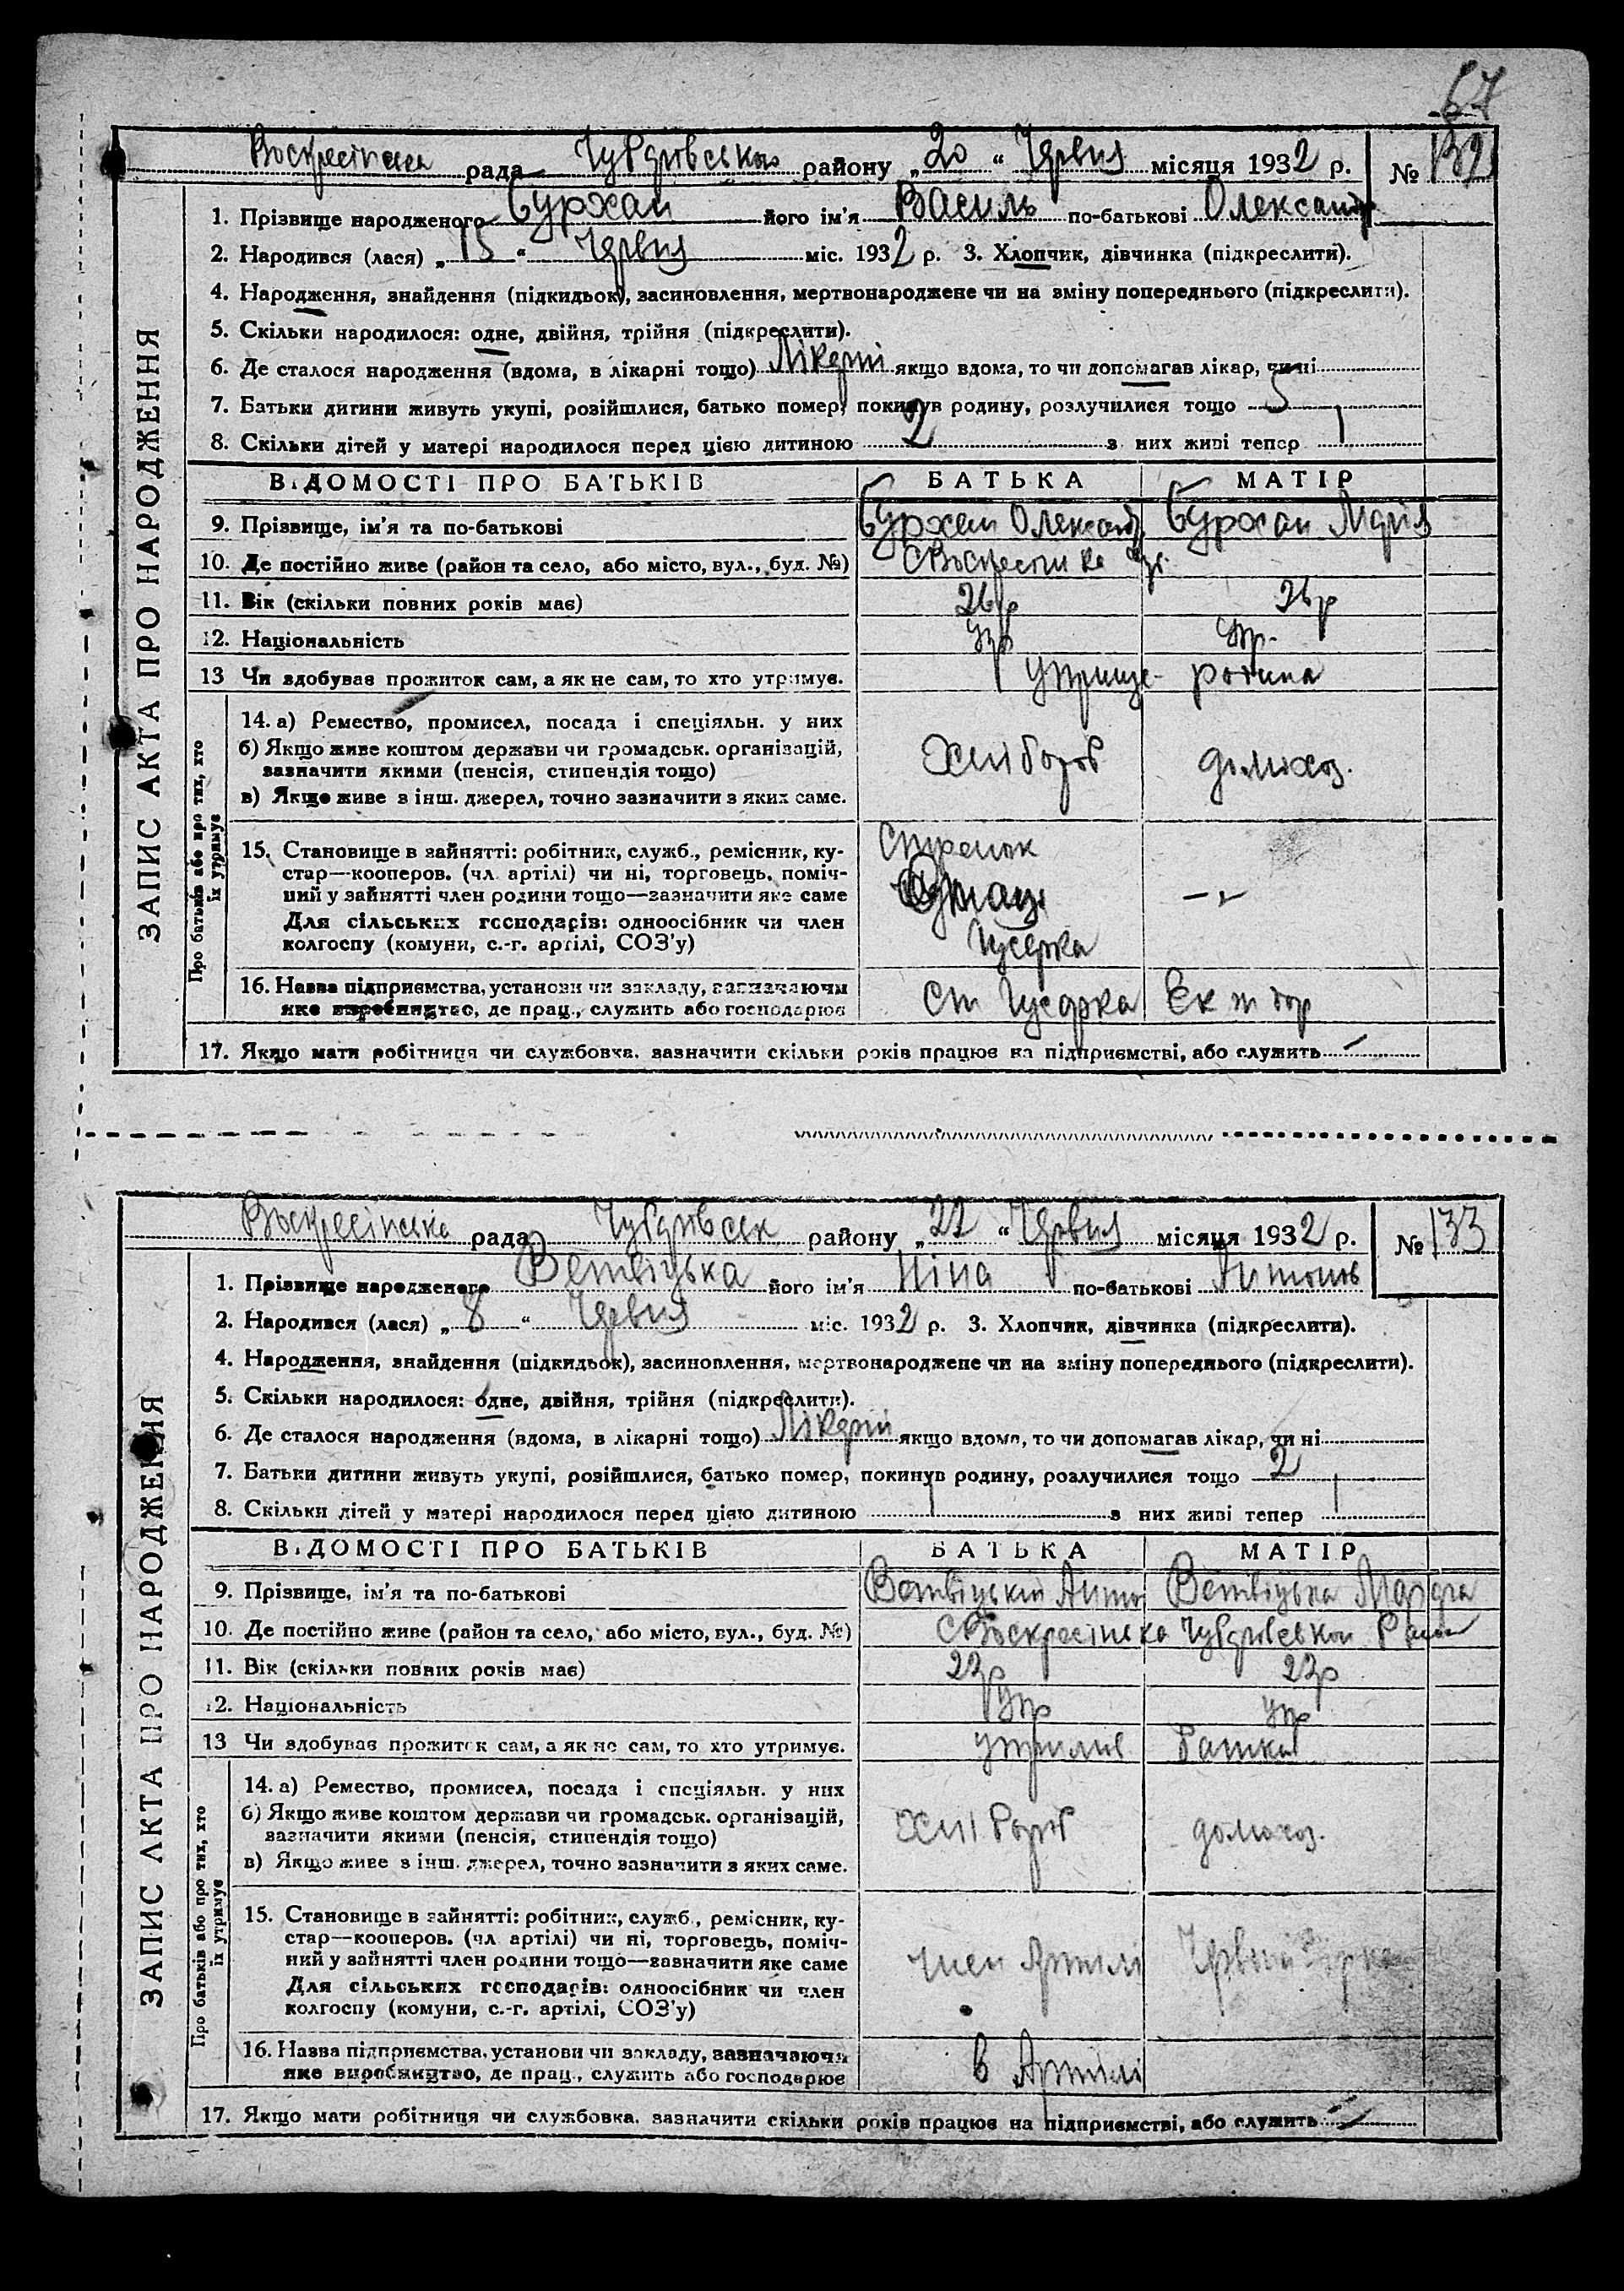 67
Воскресінська рада Чубарівського району „20“ Червня місяця 1932 р. № 132
1. Прізвище народженого Бурхан його ім'я Василь по-батькові Олександр
2. Народився (лася) „15“ Червня міс. 1932 р. 3. Хлопчик, дівчинка (підкреслити).
4. Народження, знайдення (підкидьок), засиновлення, мертвонароджене чи на зміну попереднього (підкреслити).
5. Скільки народилося: одне, двійня, трійня (підкреслити).
6. Де сталося народження (вдома, в лікарні тощо) Лікарні якщо вдома, то чи допомагав лікар, чи ні
7. Батьки дитини живуть укупі, розійшлися, батько помер, покинув родину, розлучилися тощо 5
8. Скільки дітей у матері народилося перед цією дитиною 2 з них живі тепер 1
ВІДОМОСТІ ПРО БАТЬКІВ БАТЬКА МАТІР
9. Прізвище, ім'я та по-батькові Бурхан Олександр Бурхан Марія
10. Де постійно живе (район та село, або місто, вул., буд. №) С Воскресінка
11. Вік (скільки повних років має) 26 р 26 р
12. Національність Укр Укр.
13 Чи здобував прожиток сам, а як не сам, то хто утримує. родина
14. а) Ремество, промисел, посада і спеціяльн. у них
б) Якщо живе коштом держави чи громадськ. організацій,
зазначити якими (пенсія, стипендія тощо) Хлібороб домохоз.
в) Якщо живе з інш. джерел, точно зазначити з яких саме.
15. Становище в зайнятті: робітник, служб., ремісник, ку-
стар—кооперов. (чл артілі) чи ні, торговець, поміч-
ний у зайнятті член родини тощо—зазначити яке саме
Для сільських господарів: одноосібник чи член
колгоспу (комуни, с.-г. артілі, СОЗ'у)
Гусарка
16. Назва підприємства, установи чи закладу, зазначаючи
яке виробництво, де прац., служить або господарює Ст Гусарка
17. Якщо мати робітниця чи службовка, зазначити скільки років працює на підприємстві, або служить —
ЗАПИС АКТА ПРО НАРОДЖЕННЯ
Про батьків або про тих, хто
їх утримує
Воскресінська рада Чубарівськ району „22“ Червня місяця 1932 р. № 133
1. Прізвище народженого Ветвіцька його ім'я Ніна по-батькові Антонов
2. Народився (лася) „8“ Червня міс. 1932 р. 3. Хлопчик, дівчинка (підкреслити).
4. Народження, знайдення (підкидьок), засиновлення, мертвонароджене чи на зміну попереднього (підкреслити).
5. Скільки народилося: одне, двійня, трійня (підкреслити).
6. Де сталося народження (вдома, в лікарні тощо) Лікарні якщо вдома, то чи допомагав лікар, чи ні
7. Батьки дитини живуть укупі, розійшлися, батько помер, покинув родину, розлучилися тощо 2
8. Скільки дітей у матері народилося перед цією дитиною 1 з них живі тепер 1
ВІДОМОСТІ ПРО БАТЬКІВ БАТЬКА МАТІР
9. Прізвище, ім'я та по-батькові Ветвіцький Антон Ветвіцька
10. Де постійно живе (район та село, або місто, вул., буд. №) С Воскресінька Чубарівськои Район
11. Вік (скільки повних років має) 22р 22р
12. Національність Укр Укр
13 Чи здобував прожиток сам, а як не сам, то хто утримує. Батька
14. а) Ремество, промисел, посада і спеціяльн. у них
б) Якщо живе коштом держави чи громадськ. організацій,
зазначити якими (пенсія, стипендія тощо) Хлібороб домохоз.
в) Якщо живе з інш. джерел, точно зазначити з яких саме.
15. Становище в зайнятті: робітник, служб., ремісник, ку-
стар—кооперов. (чл артілі) чи ні, торговець, поміч-
ний у зайнятті член родини тощо—зазначити яке саме член Артилі
Для сільських господарів: одноосібник чи член
колгоспу (комуни, с.-г. артілі, СОЗ'у)
16. Назва підприємства, установи чи закладу, зазначаючи
яке виробництво, де прац., служить або господарює в Артилі
17. Якщо мати робітниця чи службовка, зазначити скільки років працює на підприємстві, або служить —
ЗАПИС АКТА ПРО НАРОДЖЕННЯ
Про батьків або про тих, хто
їх утримує